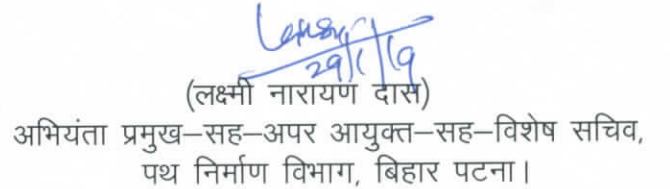 29/1/19
(लक्ष्मी नारायण दास)
अभियंता प्रमुख–सह–अपर आयुक्त–सह–विशेष सचिव,
पथ निर्माण विभाग, बिहार पटना।